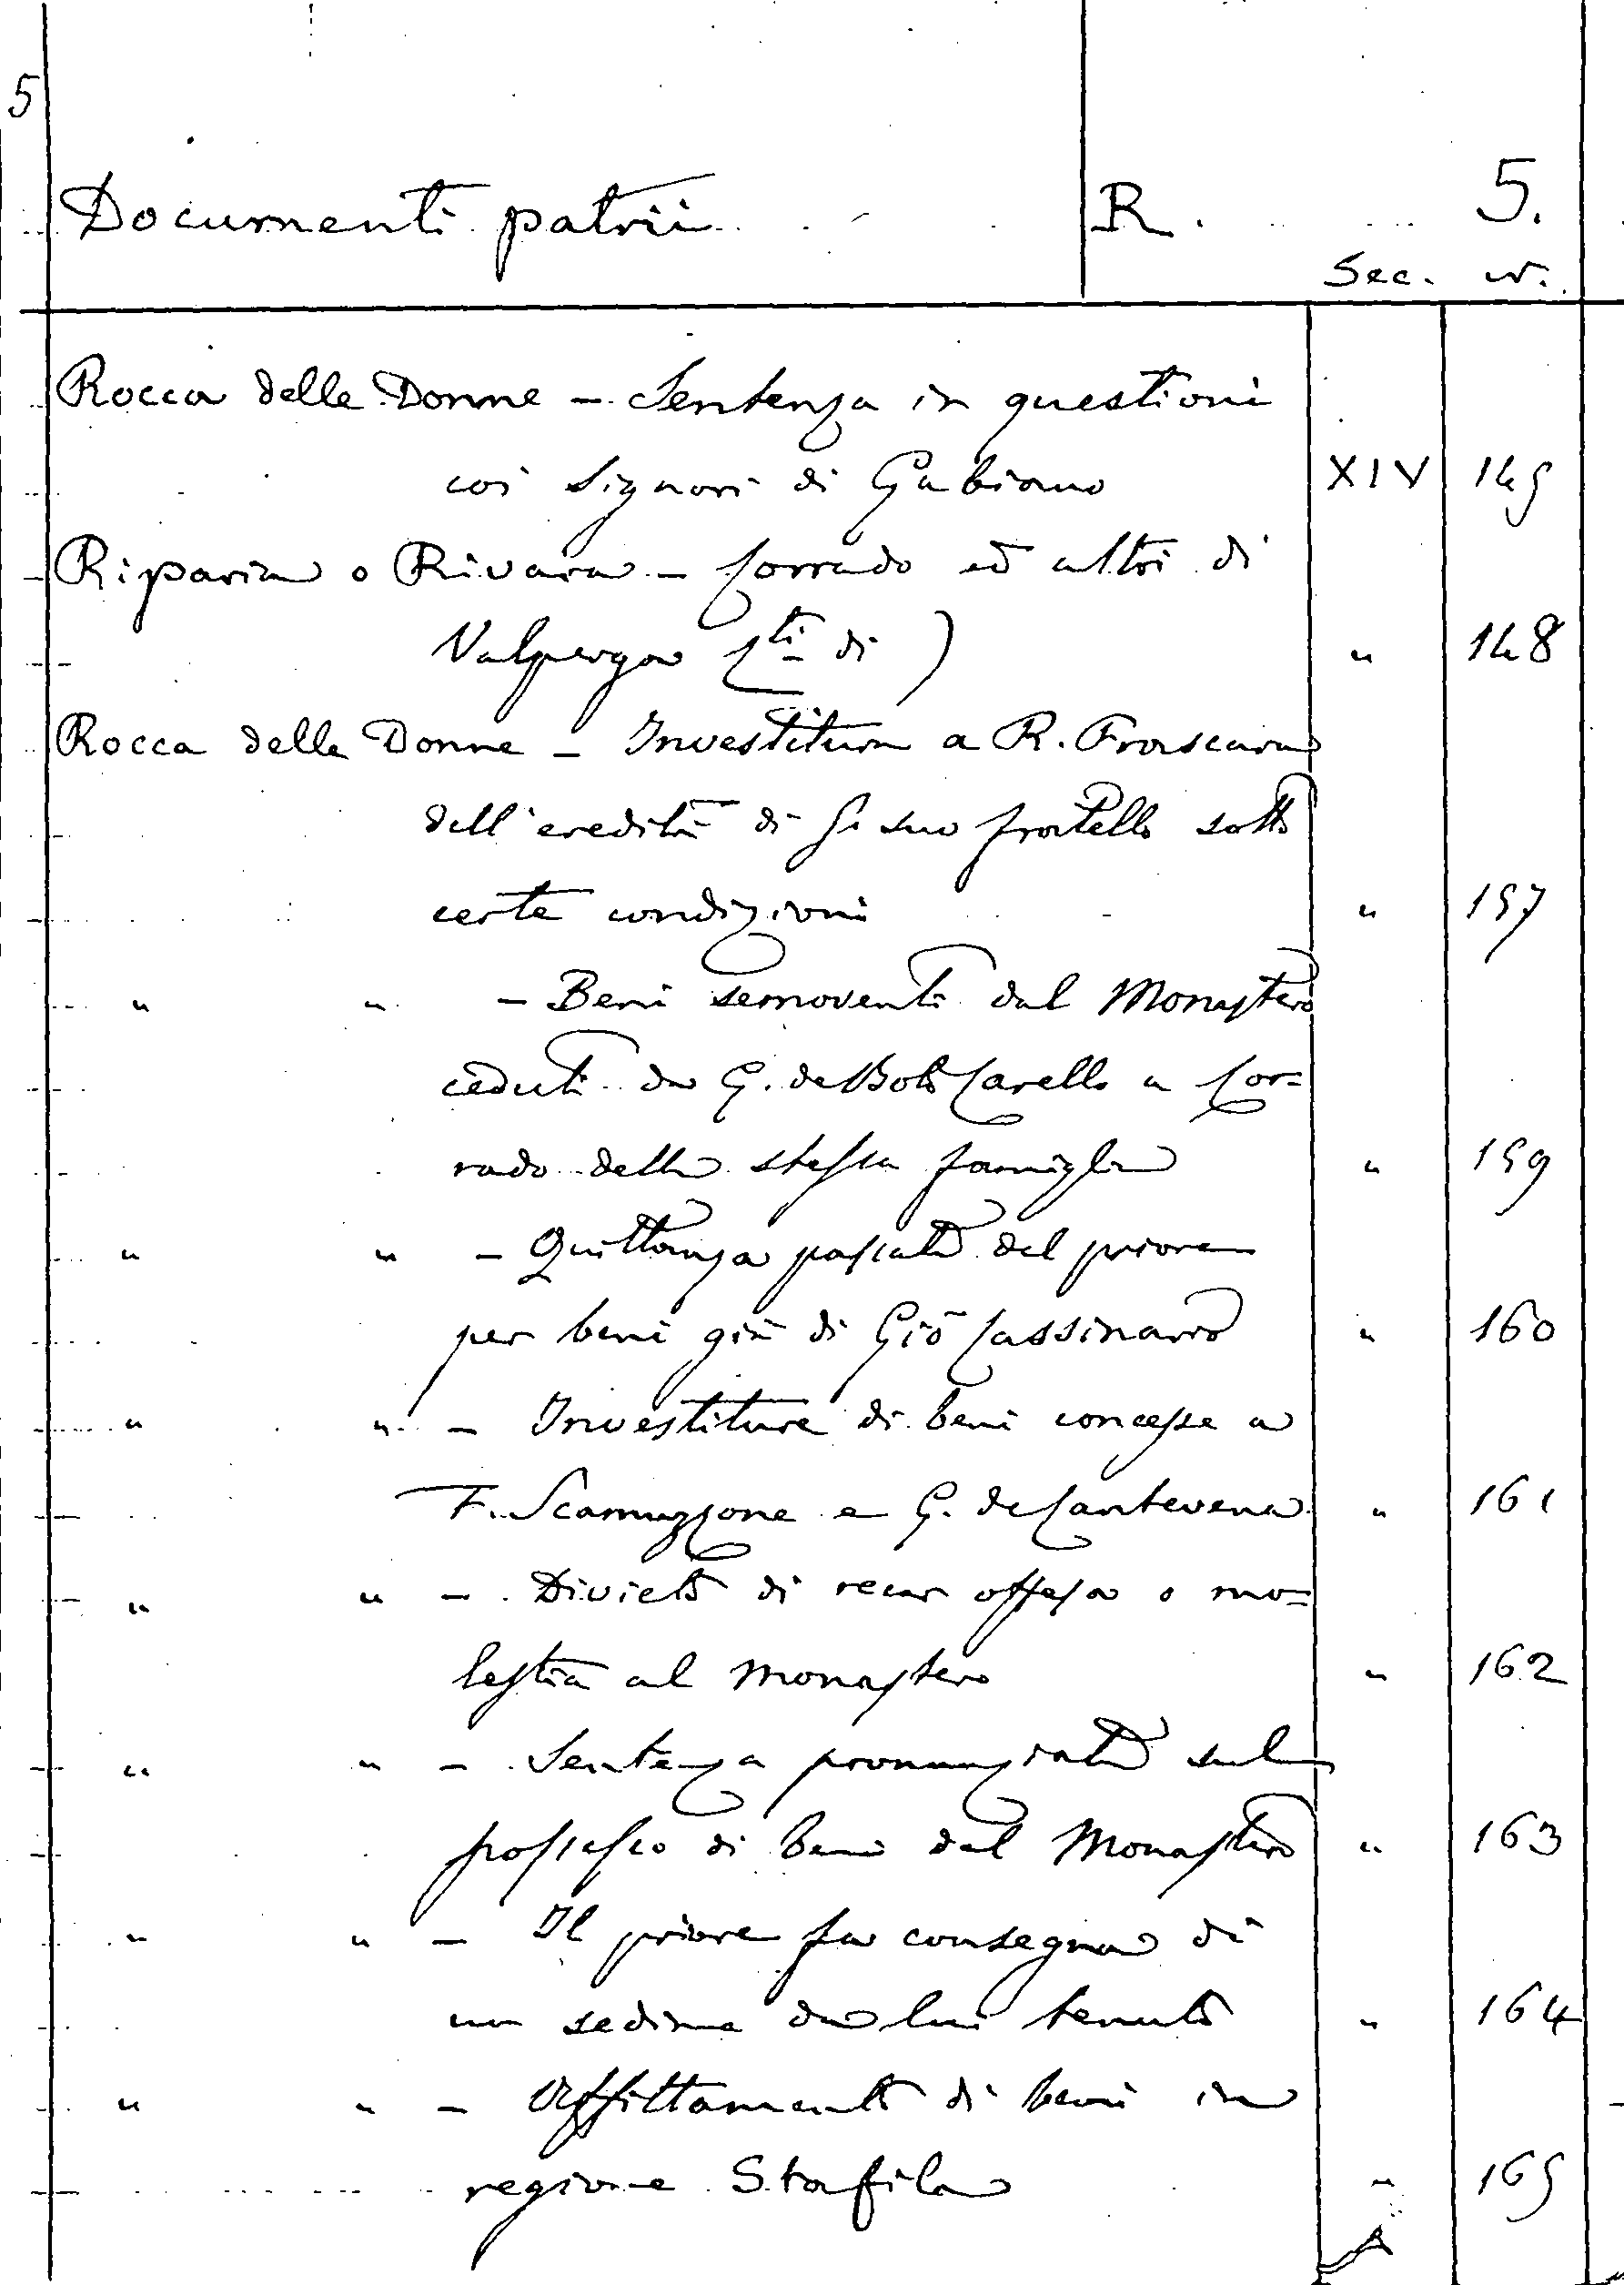 5
Documenti patrii R. 5.
Sec. N.
Rocca delle Donne - Sentenza in questioni
coi Signori di Gabiano XIV 145
Riparia o Rivara - Corrado ed altri di
Valperga (Cti di) " 148
Rocca delle Donne - Investitura a R. Frascara
dell'eredità di suo fratello sotto
certe condizioni " 157
" " - Beni semoventi dal Monastero
ceduti da G. de Carello a Cor=
rado della stessa famiglia " 159
" " - Quittanza passata dal priore
per beni già di Giō Cassinario " 160
" " - Investiture di beni concesse a
F. Scamuzzone e G. de Cantevena " 161
" " - Divieto di recar offesa o mo=
lestia al Monastero " 162
" " - Sentenza pronunziata sul
possesso di beni del Monastero " 163
" " - Il priore fa consegna di
un sedime da lui tenuto " 164
" " - Affittamento di beni in
regione Stafila " 165